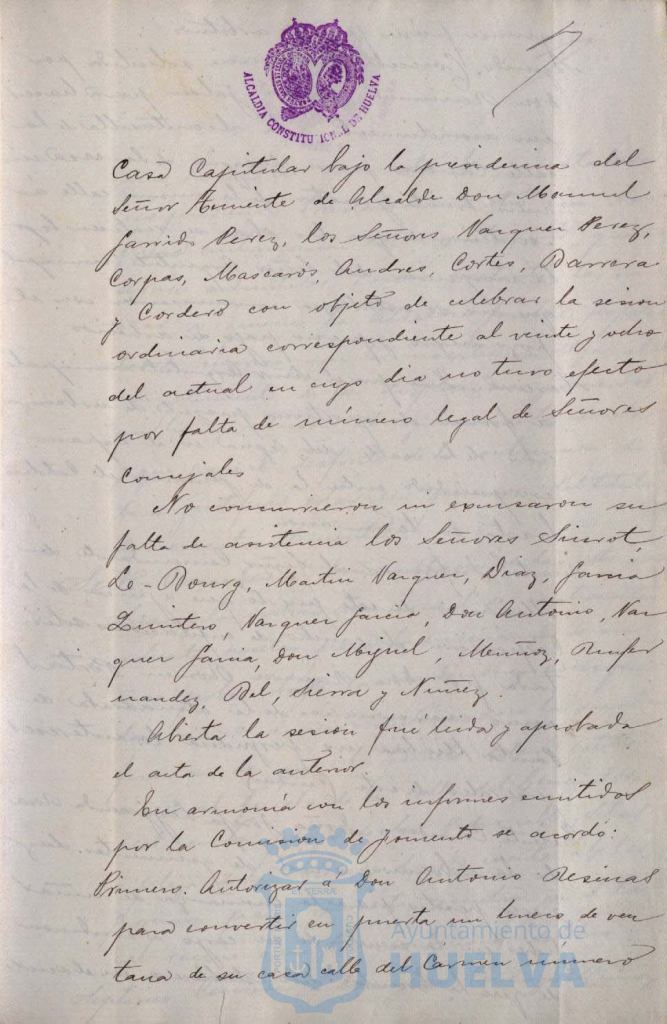 ALCALDIA CONSTITUCIONAL DE HUELVA
Casa Capitular bajo la presidencia del
Señor Teniente de Alcalde Don Manuel
Garrido Perez, los Señores Vazquez Perez,
Corpas, Mascarós, Andres, Cortés, Barrera
y Cordero con objeto de celebrar la sesion
ordinaria correspondiente al veinte y ocho
del actual en cuyo dia no tuvo efecto
por falta de número legal de Señores
Concejales
No concurrieron ni excusaron su
falta de asistencia los Señores Siurot,
Le-Bourg, Martin Vazquez, Diaz, Garcia
Quintero, Vazquez Garcia, Don Antonio, Vaz
quez Garcia, Don Miguel, Muñoz,
nandez, Bel, Sierra y Nuñez.
Abierta la sesion fué leida y aprobada
el acta de la anterior
En armonía con los informes emitidos
por la Comision de Fomento se acordó:
Primero. Autorizar á Don Antonio Resinas
para convertir en puerta un hueco de ven
tana de su casa calle del Carmen número
Ayuntamiento de
HUELVA